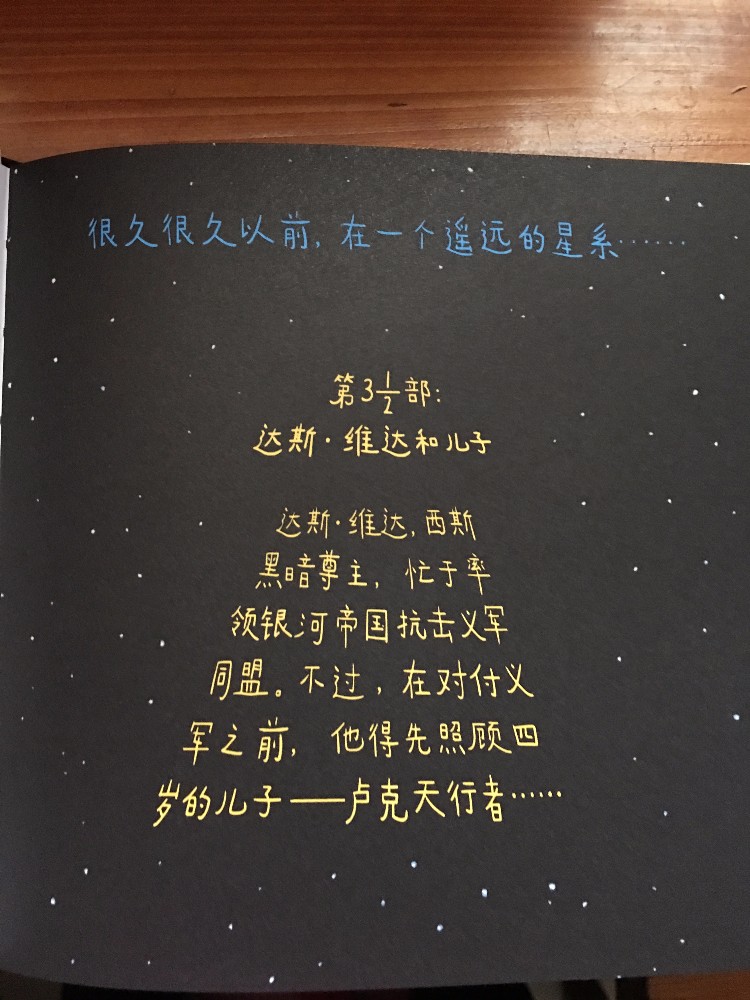 很久很久以前，在一个遥远的星系……
第3½部：
达斯·维达和儿子
达斯·维达，西斯
黑暗尊主，忙于率
领银河帝国抗击义军
同盟。不过，在对付义
军之前，他得先照顾四
岁的儿子——卢克天行者……